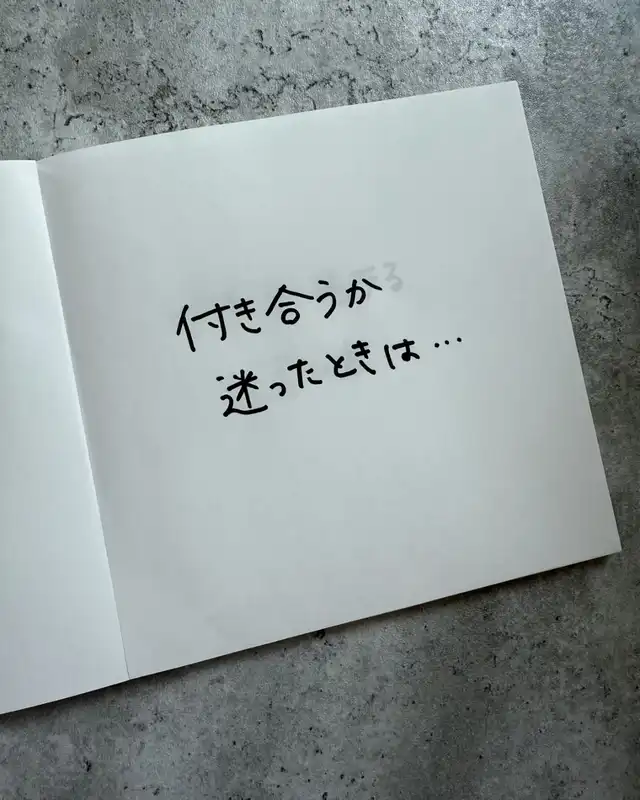 付き合うか
迷ったときは…